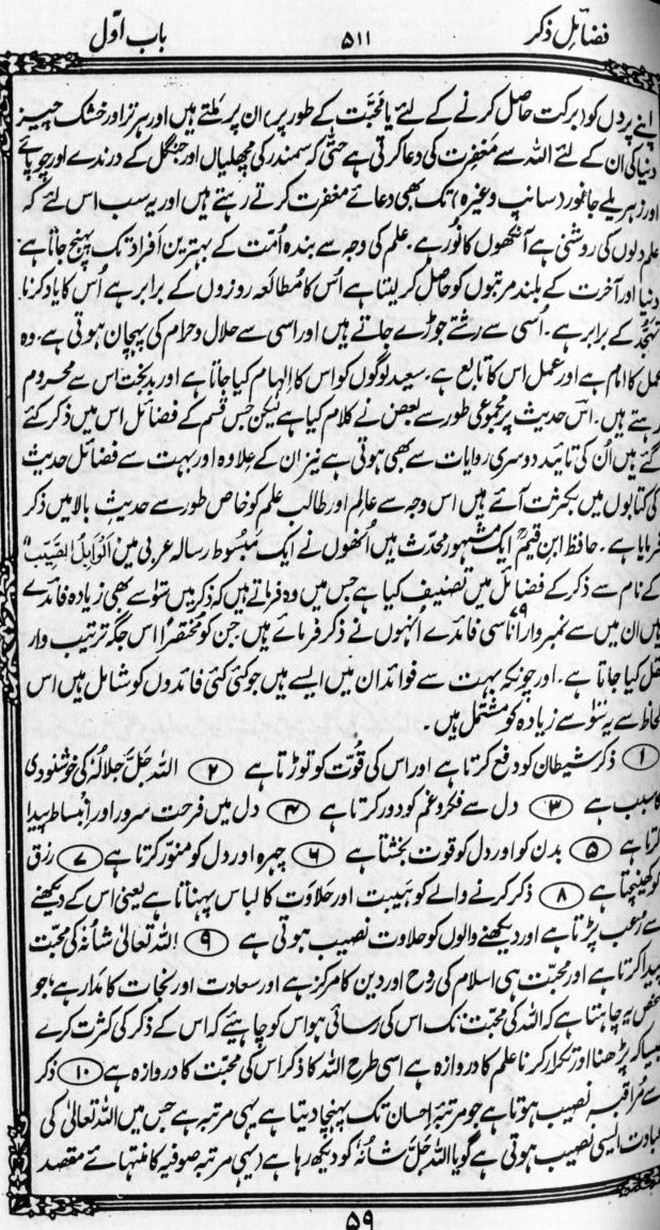 فضائلِ ذکر ۵۱۱ باب اوّل
اپنے پروں کو (برکت حاصل کرنے کے لئے یا محبّت کے طور پر) ان پر ملتے ہیں اور ہر تر اور خشک چیز
دنیا کی ان کے لئے اللہ سے مغفرت کی دعا کرتی ہے حتٰی کہ سمندر کی مچھلیاں اور جنگل کے درندے اور چوپائے
اور زہریلے جانور (سانپ وغیرہ) تک بھی دعائے مغفرت کرتے رہتے ہیں اور یہ سب اس لئے کہ
علم دلوں کی روشنی ہے آنکھوں کا نُور ہے۔ علم کی وجہ سے بندہ اُمّت کے بہترین اَفراد تک پہنچ جاتا ہے
دنیا اور آخرت کے بلند مرتبوں کو حاصل کر لیتا ہے اُس کا مُطالعہ روزوں کے برابر ہے اُس کا یاد کرنا
تہجّد کے برابر ہے۔ اُسی سے رشتے جوڑے جاتے ہیں اور اسی سے حلال و حرام کی پہچان ہوتی ہے۔ وہ
عمل کا امام ہے اور عمل اس کا تابع ہے۔ سعید لوگوں کو اس کا اِلہام کیا جاتا ہے اور بدبخت اس سے محروم
رہتے ہیں۔ اس حدیث پر مجموعی طور سے بعض نے کلام کیا ہے لیکن جس قسم کے فضائل اس میں ذکر کئے
گئے ہیں اُن کی تائید دوسری روایات سے بھی ہوتی ہے نیز ان کے علاوہ اور بہت سے فضائل حدیث
کی کتابوں میں بکثرت آئے ہیں اس وجہ سے عالِم اور طالب علم کو خاص طور سے حدیثِ بالا میں ذکر
فرمایا ہے۔ حافظ ابن قیمؒ ایک مشہور محدّث ہیں اُنھوں نے ایک مَبسُوط رسالہ عربی میں "اَلْوَابِلُ الصَّيِّبُ"
کے نام سے ذکر کے فضائل میں تصنیف کیا ہے جس میں وہ فرماتے ہیں کہ ذکر میں سَو سے بھی زیادہ فائدے
ہیں ان میں سے نمبر وار اُناسی ۷۹ فائدے اُنہوں نے ذکر فرمائے ہیں جن کو مُختصراً اس جگہ ترتیب وار
نقل کیا جاتا ہے۔ اور چونکہ بہت سے فوائد ان میں ایسے ہیں جو کئی کئی فائدوں کو شامل ہیں اس
لحاظ سے یہ سَو سے زیادہ کو مشتمل ہیں۔
(۱) ذکر شیطان کو دفع کرتا ہے اور اس کی قُوّت کو توڑتا ہے (۲) اللہ جَلَّ جَلالُہٗ کی خوشنودی
کا سبب ہے (۳) دل سے فکر و غم کو دور کرتا ہے (۴) دل میں فرحت سُرور اور اِنبساط پیدا
کرتا ہے (۵) بدن کو اور دل کو قوت بخشتا ہے (۶) چہرہ اور دل کو منوّر کرتا ہے (۷) رزق
کو کھینچتا ہے (۸) ذکر کرنے والے کو ہَیبت اور حَلاوَت کا لباس پہناتا ہے یعنی اس کے دیکھنے
سے رُعب پڑتا ہے اور دیکھنے والوں کو حلاوت نصیب ہوتی ہے (۹) اللہ تعالیٰ شانُہٗ کی محبّت
پیدا کرتا ہے اور محبّت ہی اسلام کی روح اور دین کا مرکز ہے اور سعادت اور نجات کا مَدار ہے، جو
شخص یہ چاہتا ہے کہ اللہ کی محبّت تک اس کی رسائی ہو اس کو چاہیئے کہ اس کے ذکر کی کثرت کرے
جیسا کہ پڑھنا اور تکرار کرنا علم کا دروازہ ہے اسی طرح اللہ کا ذکر اس کی محبت کا دروازہ ہے (۱۰) ذکر
سے مُراقبہ نصیب ہوتا ہے جو مرتبۂ احسان تک پہنچا دیتا ہے یہی مرتبہ ہے جس میں اللہ تعالیٰ کی
عبادت ایسی نصیب ہوتی ہے گویا اللہ جَلَّ شانُہٗ کو دیکھ رہا ہے (یہی مرتبہ صوفیہ کا منتہائے مقصد
۵۹